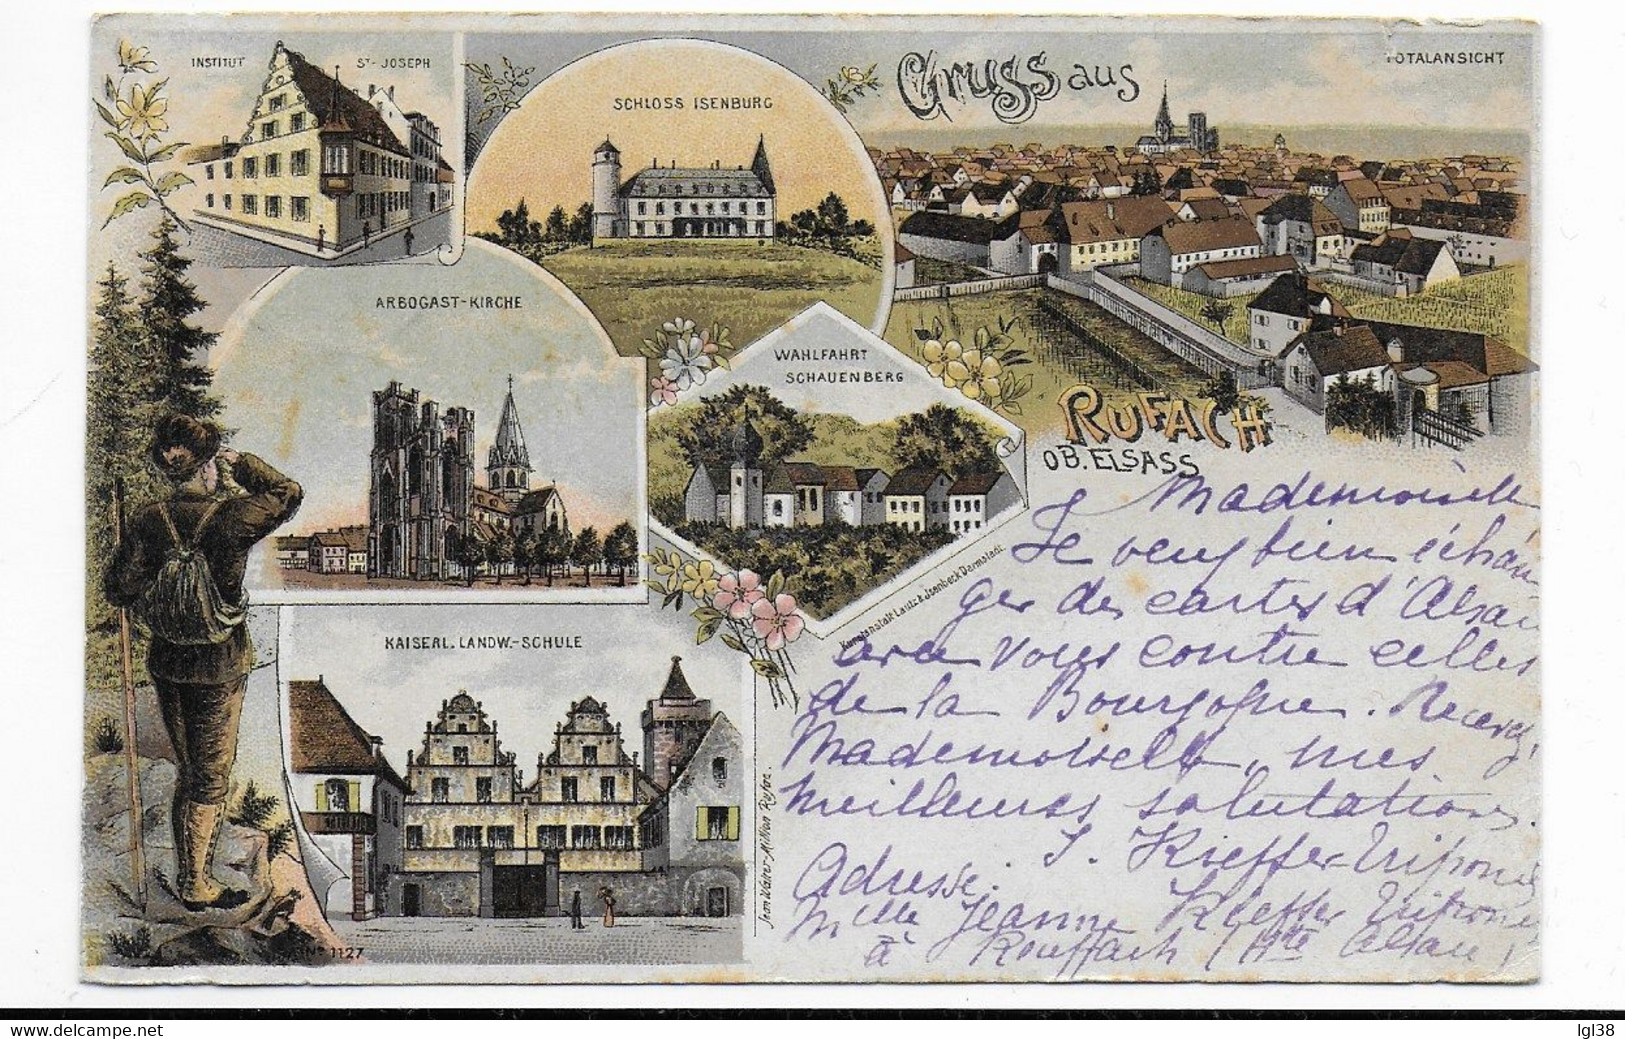 INSTITUT ST-JOSEPH
SCHLOSS ISENBURG
Gruss aus
TOTALANSICHT
ARBOGAST-KIRCHE
WAHLFAHRT
SCHAUENBERG
RUFACH
OB. ELSASS
Kunstanstalt Lautz & Isenbeck Darmstadt.
KAISERL. LANDW.-SCHULE
Jean Walter-Mittnan Rufac.
No 1127
Mademoiselle
Je veux bien échan
ger des cartes d'Alsace
avec vous contre celles
de la Bourgogne. Recevez,
Mademoiselle, mes
meilleures salutations.
J. Kieffer-Triponel
Adresse.
Mlle Jeanne Kieffer Triponel
à Rouffach (Hte Alsace)
lgl38
www.delcampe.net